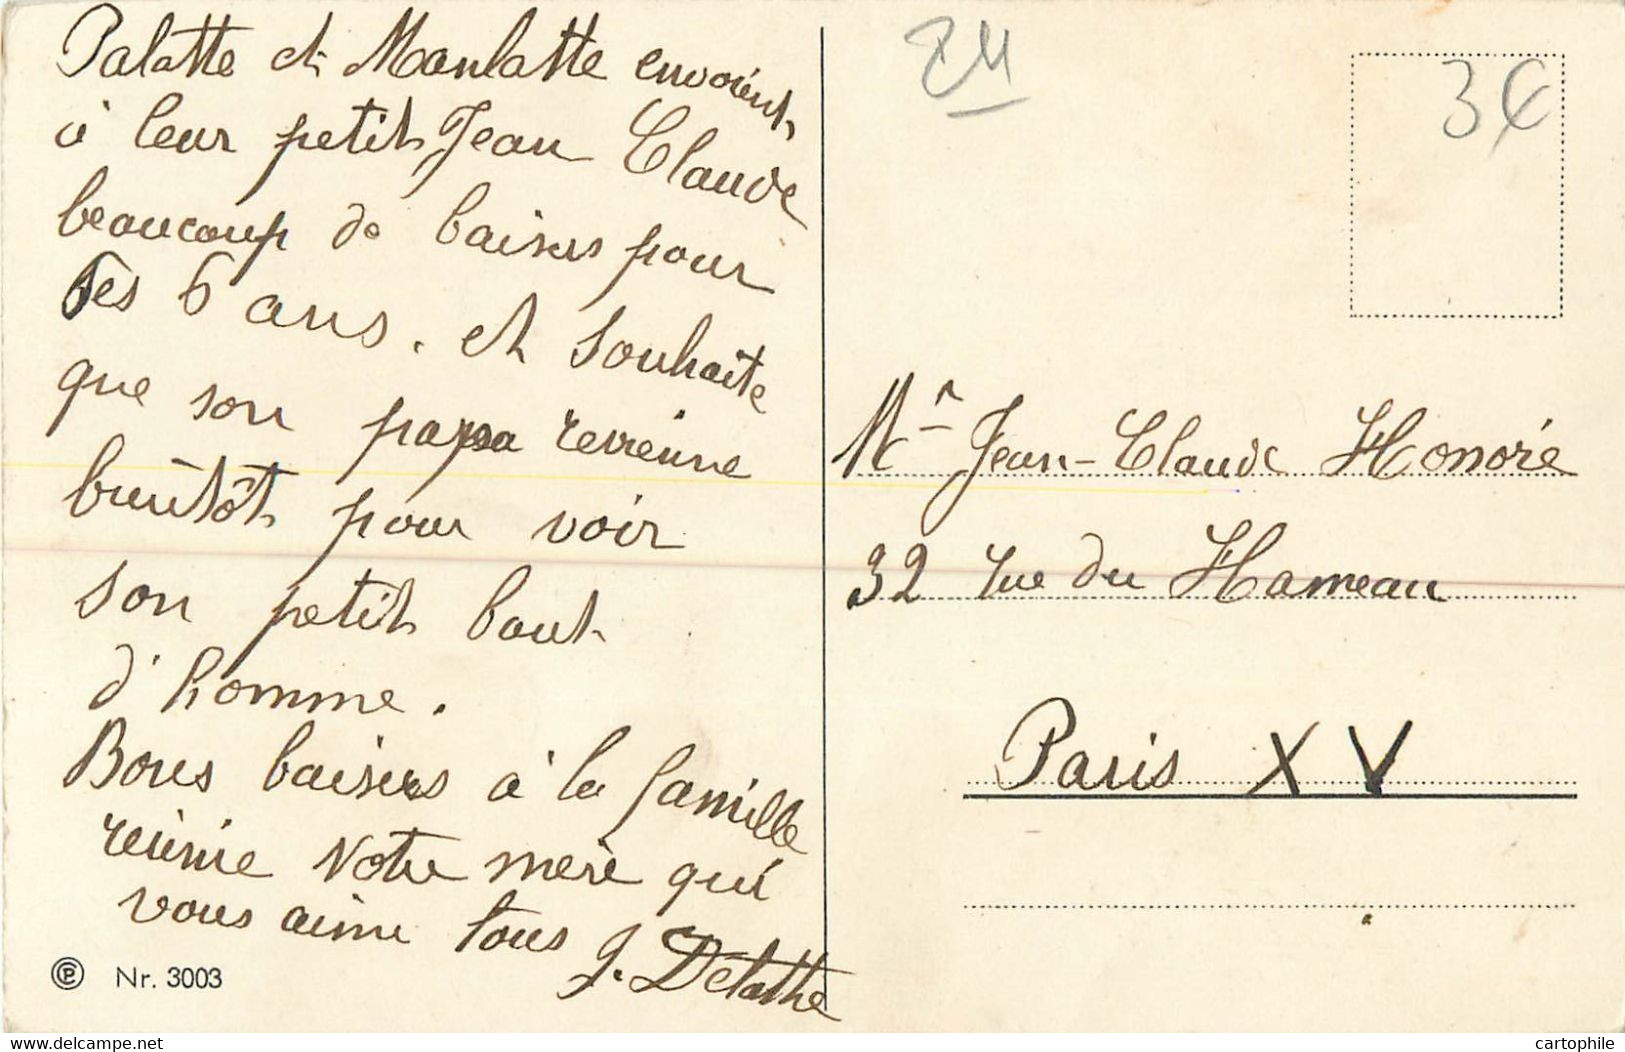 Palatte et Manlatte envoient
à leur petit Jean Claude
beaucoup de baisers pour
ses 6 ans. et souhaite
que son papa revienne
bientôt pour voir
son petit bout
d'homme.
Bons baisers à la famille
réunie Votre mère qui
vous aime tous J. Delatte
Nr. 3003
3€
Mr Jean-Claude Honoré
32 rue du Hameau
Paris XV
delcampe.net
cartophile